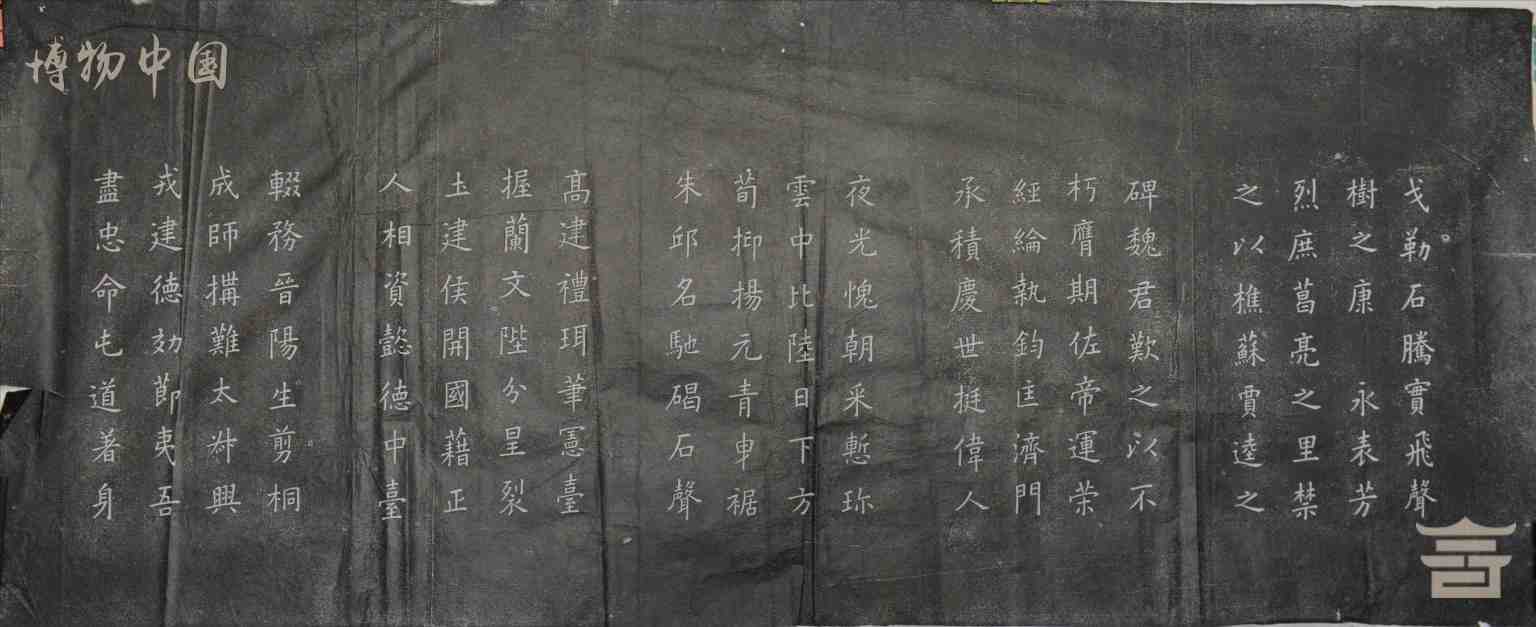 博物中国
戈勒石騰實飛聲
樹之康永表芳
烈庶葛亮之里禁
之以樵蘇賈逵之
碑魏君歎之以不
朽膺期佐帝運荣
經綸執鈞匡濟門
承積慶世挺偉人
夜光愧朝采慙珎
雲中比陸日下方
荀抑揚元青申裾
朱邱名馳碣石聲
髙建禮珥筆憲臺
握蘭文陛分星裂
土建侯開國藉正
人相資懿德中臺
輟務晉陽生剪桐
成師搆難太叔興
戎建徳効節夷吾
盡忠命屯道著身